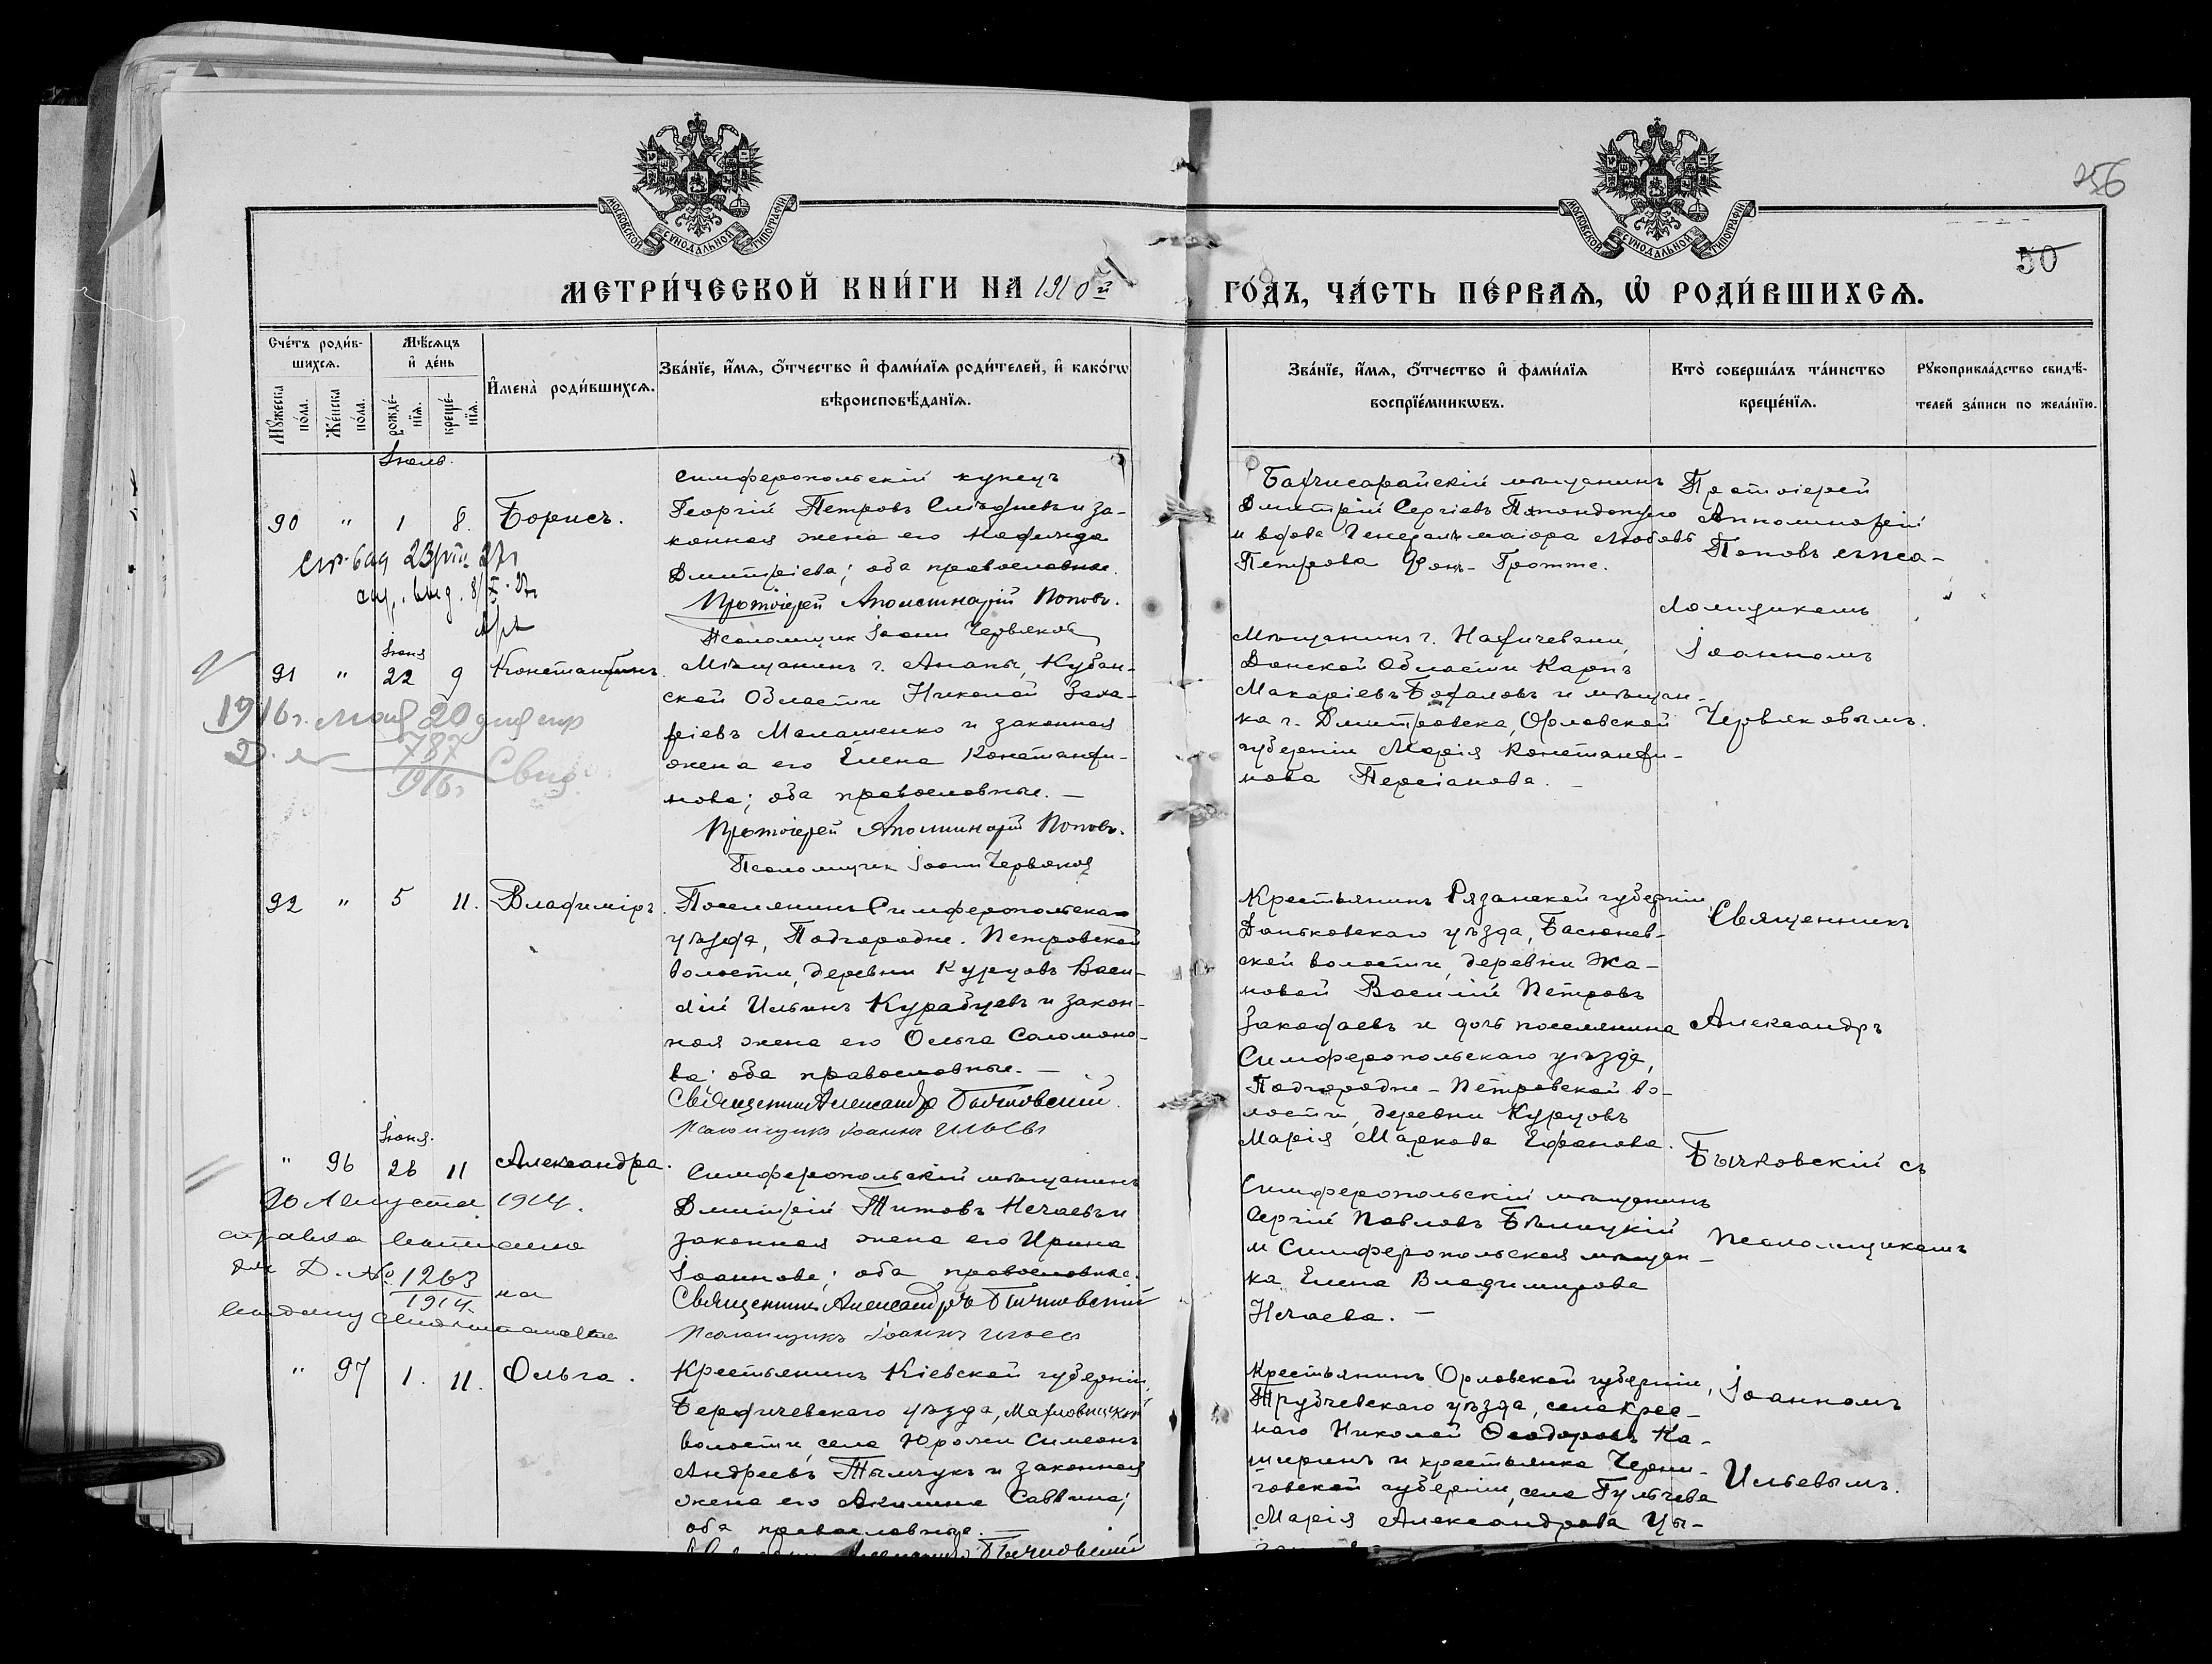 МОСКОВСКОЙ СѴНОДАЛЬНОЙ ТИПОГРАФІИ
МОСКОВСКОЙ СѴНОДАЛЬНОЙ ТИПОГРАФІИ
256
50
МЕТРИ́ЧЕСКОЙ КНИ́ГИ НА 1910й
ГО́ДЪ, ЧА́СТЬ ПЕ́РВАѦ, Ѡ҆ РОДИ́ВШИХСѦ.
Сче́тъ роди́в-
шихсѧ.
Мꙋ́жеска
по́ла.
Же́нска
по́ла.
Мѣ́сѧцъ
и҆ де́нь
рожде́-
нїѧ.
креще́-
нїѧ.
И҆мена̀ роди́вшихсѧ.
Зва́нїе, и҆́мѧ, ѻ҆́тчество и҆ фами́лїѧ роди́телей, и҆ како́гѡ
вѣроисповѣ́данїѧ.
Зва́нїе, и҆́мѧ, ѻ҆́тчество и҆ фами́лїѧ
воспрїе́мникѡвъ.
Кто̀ соверша́лъ та́инство
креще́нїѧ.
Рꙋкоприкла́дство свидѣ́-
телей за́писи по жела́нїю.
Іюль.
90 " 1 8. Борисъ.
Симферопольскій купецъ
Георгій Петровъ и за-
конная жена его Надежда
Дмитріева; оба православные.
Протоіерей Аполлинарій Поповъ.
Псаломщик Іоанн Червяков
Бахчисарайскій мѣщанинъ
Дмитрій Сергіевъ
и вдова Генералъ маіора Любовь
Петрова Фонъ-Гротте.
Протоіерей
Апполинарій
Поповъ съ пса-
ломщикомъ
Іоанномъ
Червяковымъ.
Іюня
91 " 22 9 Константинъ.
1916 г. мая 20 дня
787
1916 г.
Мѣщанинъ г. Анапы, Кубан-
ской Области Николай Заха-
ріевъ Малашенко и законная
жена его Елена Константи-
нова; оба православные. —
Протоіерей Аполлинарій Поповъ.
Псаломщик Іоанн Червяков
Мѣщанинъ г. Нахичевани,
Донской Области Карпъ
Макаріевъ и мѣщан-
ка г. Дмитровска, Орловской
губерніи Марія Константи-
нова Персіанова. —
92 " 5 11. Владиміръ.
Поселянинъ Симферопольскаго
уѣзда, Подгородне-Петровской
волости, деревни Курцовъ Васи-
лій Ильинъ Курабцевъ и закон-
ная жена его Ольга Соломоно-
ва; оба православные. —
Священник Александр Бычковскій.
Псаломщикъ Іоаннъ Ильевъ
Крестьянинъ Рязанской губерніи,
Даньковскаго уѣзда,
ской волости, деревни Жа-
новой Василій Петровъ
и дочь поселянина
Симферопольскаго уѣзда,
Подгородне-Петровской во-
лости, деревни Курцовъ
Марія Маркова
Священникъ
Александръ
Бычковскій съ
псаломщикомъ
Іоанномъ
Ильевымъ.
Іюня.
" 96 26 11 Александра.
20 Августа 1914.
справка
Д. № 1263
1914. на
выдачу
Симферопольскій мѣщанинъ
Дмитрій Титовъ Нечаевъ и
законная жена его Ирина
Іоаннова; оба православные.
Священникъ Александръ Бычковскій
Псаломщикъ Іоаннъ Ильевъ
Симферопольскій мѣщанинъ
Сергій Павловъ Бѣлицкій
и Симферопольская мѣщан-
ка Елена Владимирова
Нечаева. —
" 97 1. 11. Ольга.
Крестьянинъ Кіевской губерніи,
Бердичевскаго уѣзда,
волости, села Симеонъ
Андреевъ Тымчукъ и законная
жена его Акилина Саввина;
оба православные. —
Бычковскій
Крестьянинъ Орловской губерніи,
Трубчевскаго уѣзда, села Крас-
наго Николай Ѳеодоровъ Ка-
ширинъ и крестьянка Черни-
говской губерніи, села
Марія Александрова Цы-